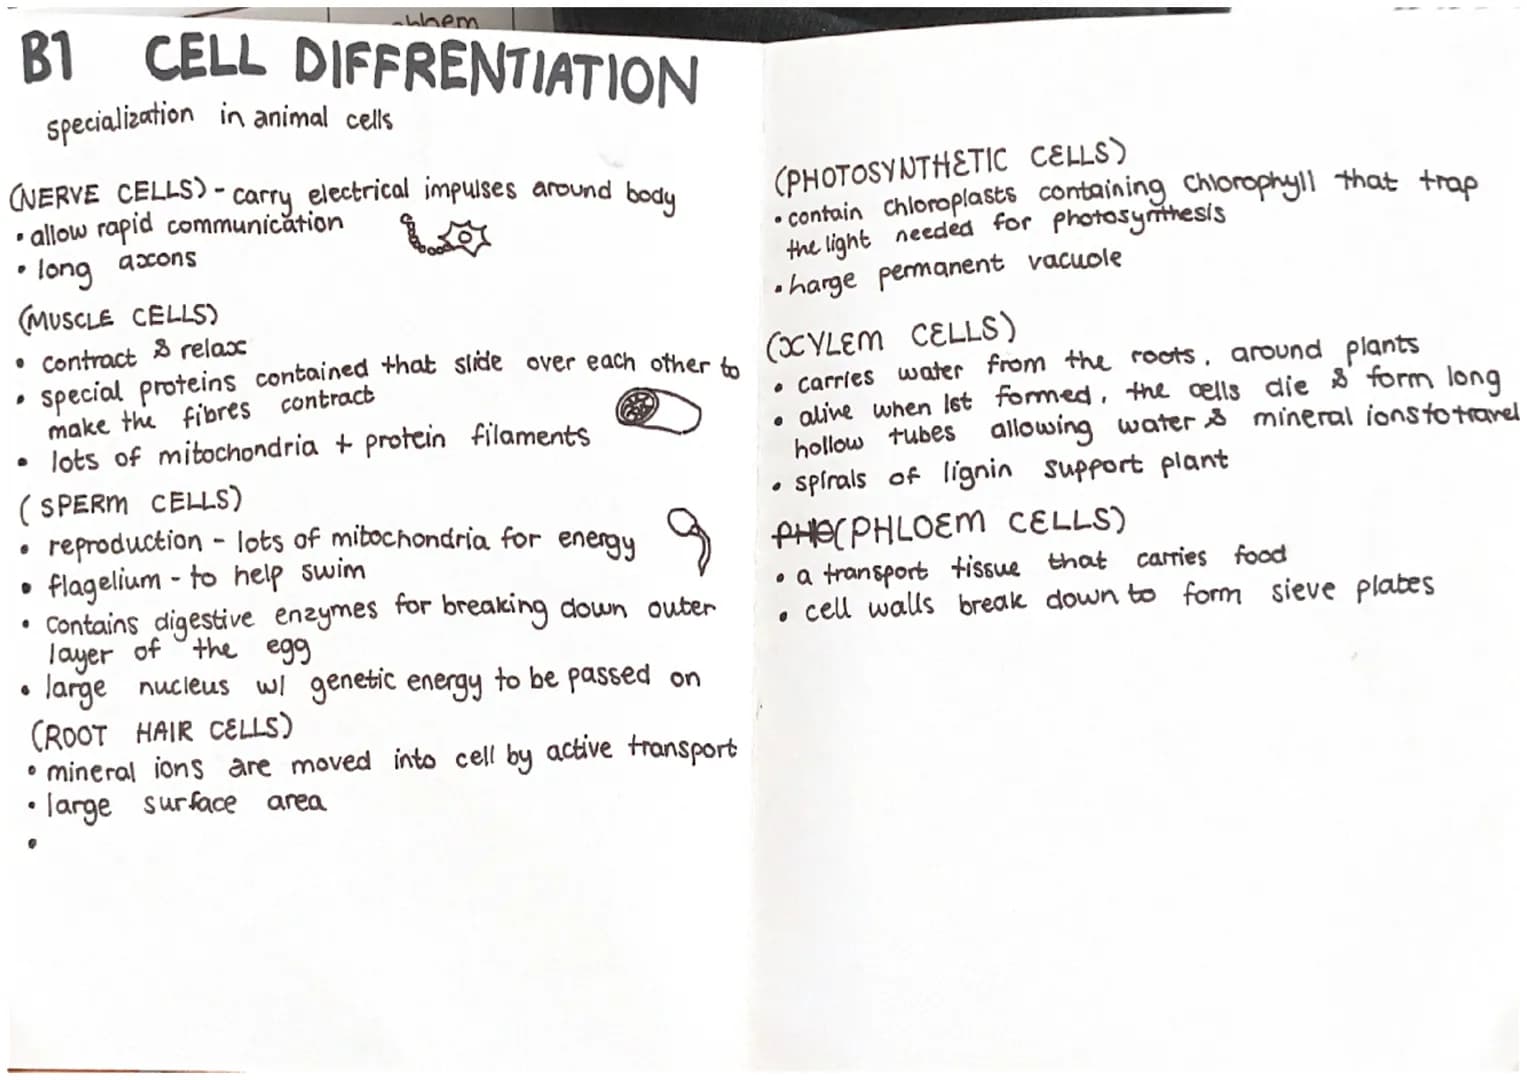 phloem
B1 CELL DIFFRENTIATION
specialization in animal cells
(NERVE CELLS) - carry electrical impulses around body
• allow rapid communication
• long axons
(MUSCLE CELLS)
• contract & relax
• special proteins contained that slide over each other to
make the fibres contract
• lots of mitochondria + protein filaments
(SPERM CELLS)
• reproduction - lots of mitochondria for energy
• flagelium - to help swim
• contains digestive enzymes for breaking down outer
layer of the egg
• large nucleus w/ genetic energy to be passed on
(ROOT HAIR CELLS)
• mineral ions are moved into cell by active transport
• large surface area
•
(PHOTOSYNTHETIC CELLS)
• contain chloroplasts containing chlorophyll that trap
the light needed for photosynthesis
• harge permanent vacuole
(XYLEM CELLS)
• carries water from the roots, around plants
• alive when 1st formed, the cells die & form long
hollow tubes allowing water & mineral ions to travel
• spirals of lignin support plant
PHO(PHLOEM CELLS)
• a transport tissue that carries food
• cell walls break down to form sieve plates